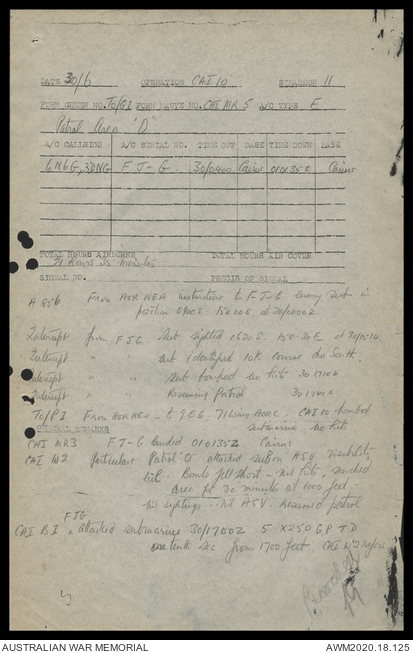 DATE 30/6 OPERATION CAI 10 SQUADRON 11
FORM GREEN NO. TO/G1 FORM MAUVE NO. CAI MR 5 A/C TYPE F
Patrol Area "D"
A/C CALLSIGN A/C SERIAL NO. TIME OFF BASE TIME DOWN BASE
6N6G, 3DNG F J - G. 30/0400 Cairns 01 0135Z Cairns
TOTAL HOURS AIRBORNE TOTAL HOURS AIR COVER
21 hours 35 minutes
SIGNAL NO. PRECIS OF SIGNAL
A 856 From AOR NEA instructions to F J-G enemy sub in
position 0900S 15200E at 30/0800Z
Intercept from FJG. Sub sighted 0620S. 150-30E at 30/1514
Intercept " " sub identified 10K course due South
Intercept " " sub bombed no hits 30 1710Z
Intercept " " Resuming Patrol 30 1740Z
TO/P1 From AOR NEA - to 9.O.G. 71 Wing CAI 10 bombed
submarine no hits
GENERAL NUMBER
CAI MR3 F J-G landed 01 0135Z Cairns
CAI W2 Particulars Patrol 'O' attacked sub on ASV visibility
nil - Bombs fell short - nil hits, searched
area for 30 minutes at 1000 feet -
nil sightings - nil ASV - resumed patrol
CAI B1 FJG attacked submarine 30/1700Z 5 X 250 GP TD
one tenth sec. from 1700 feet. CAI W2 refers
AUSTRALIAN WAR MEMORIAL AWM2020.18.125